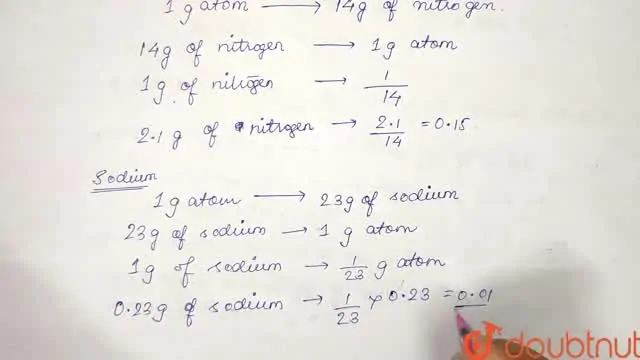 1 g atom → 14g of nitrogen.
14g of nitrogen → 1g atom
1g of nitrogen → 1/14
2.1 g of nitrogen → 2.1/14 = 0.15
Sodium
1g atom → 23g of sodium
23g of sodium → 1 g atom
1g of sodium → 1/23 g atom
0.23g of sodium → 1/23 × 0.23 = 0.01
doubtnut